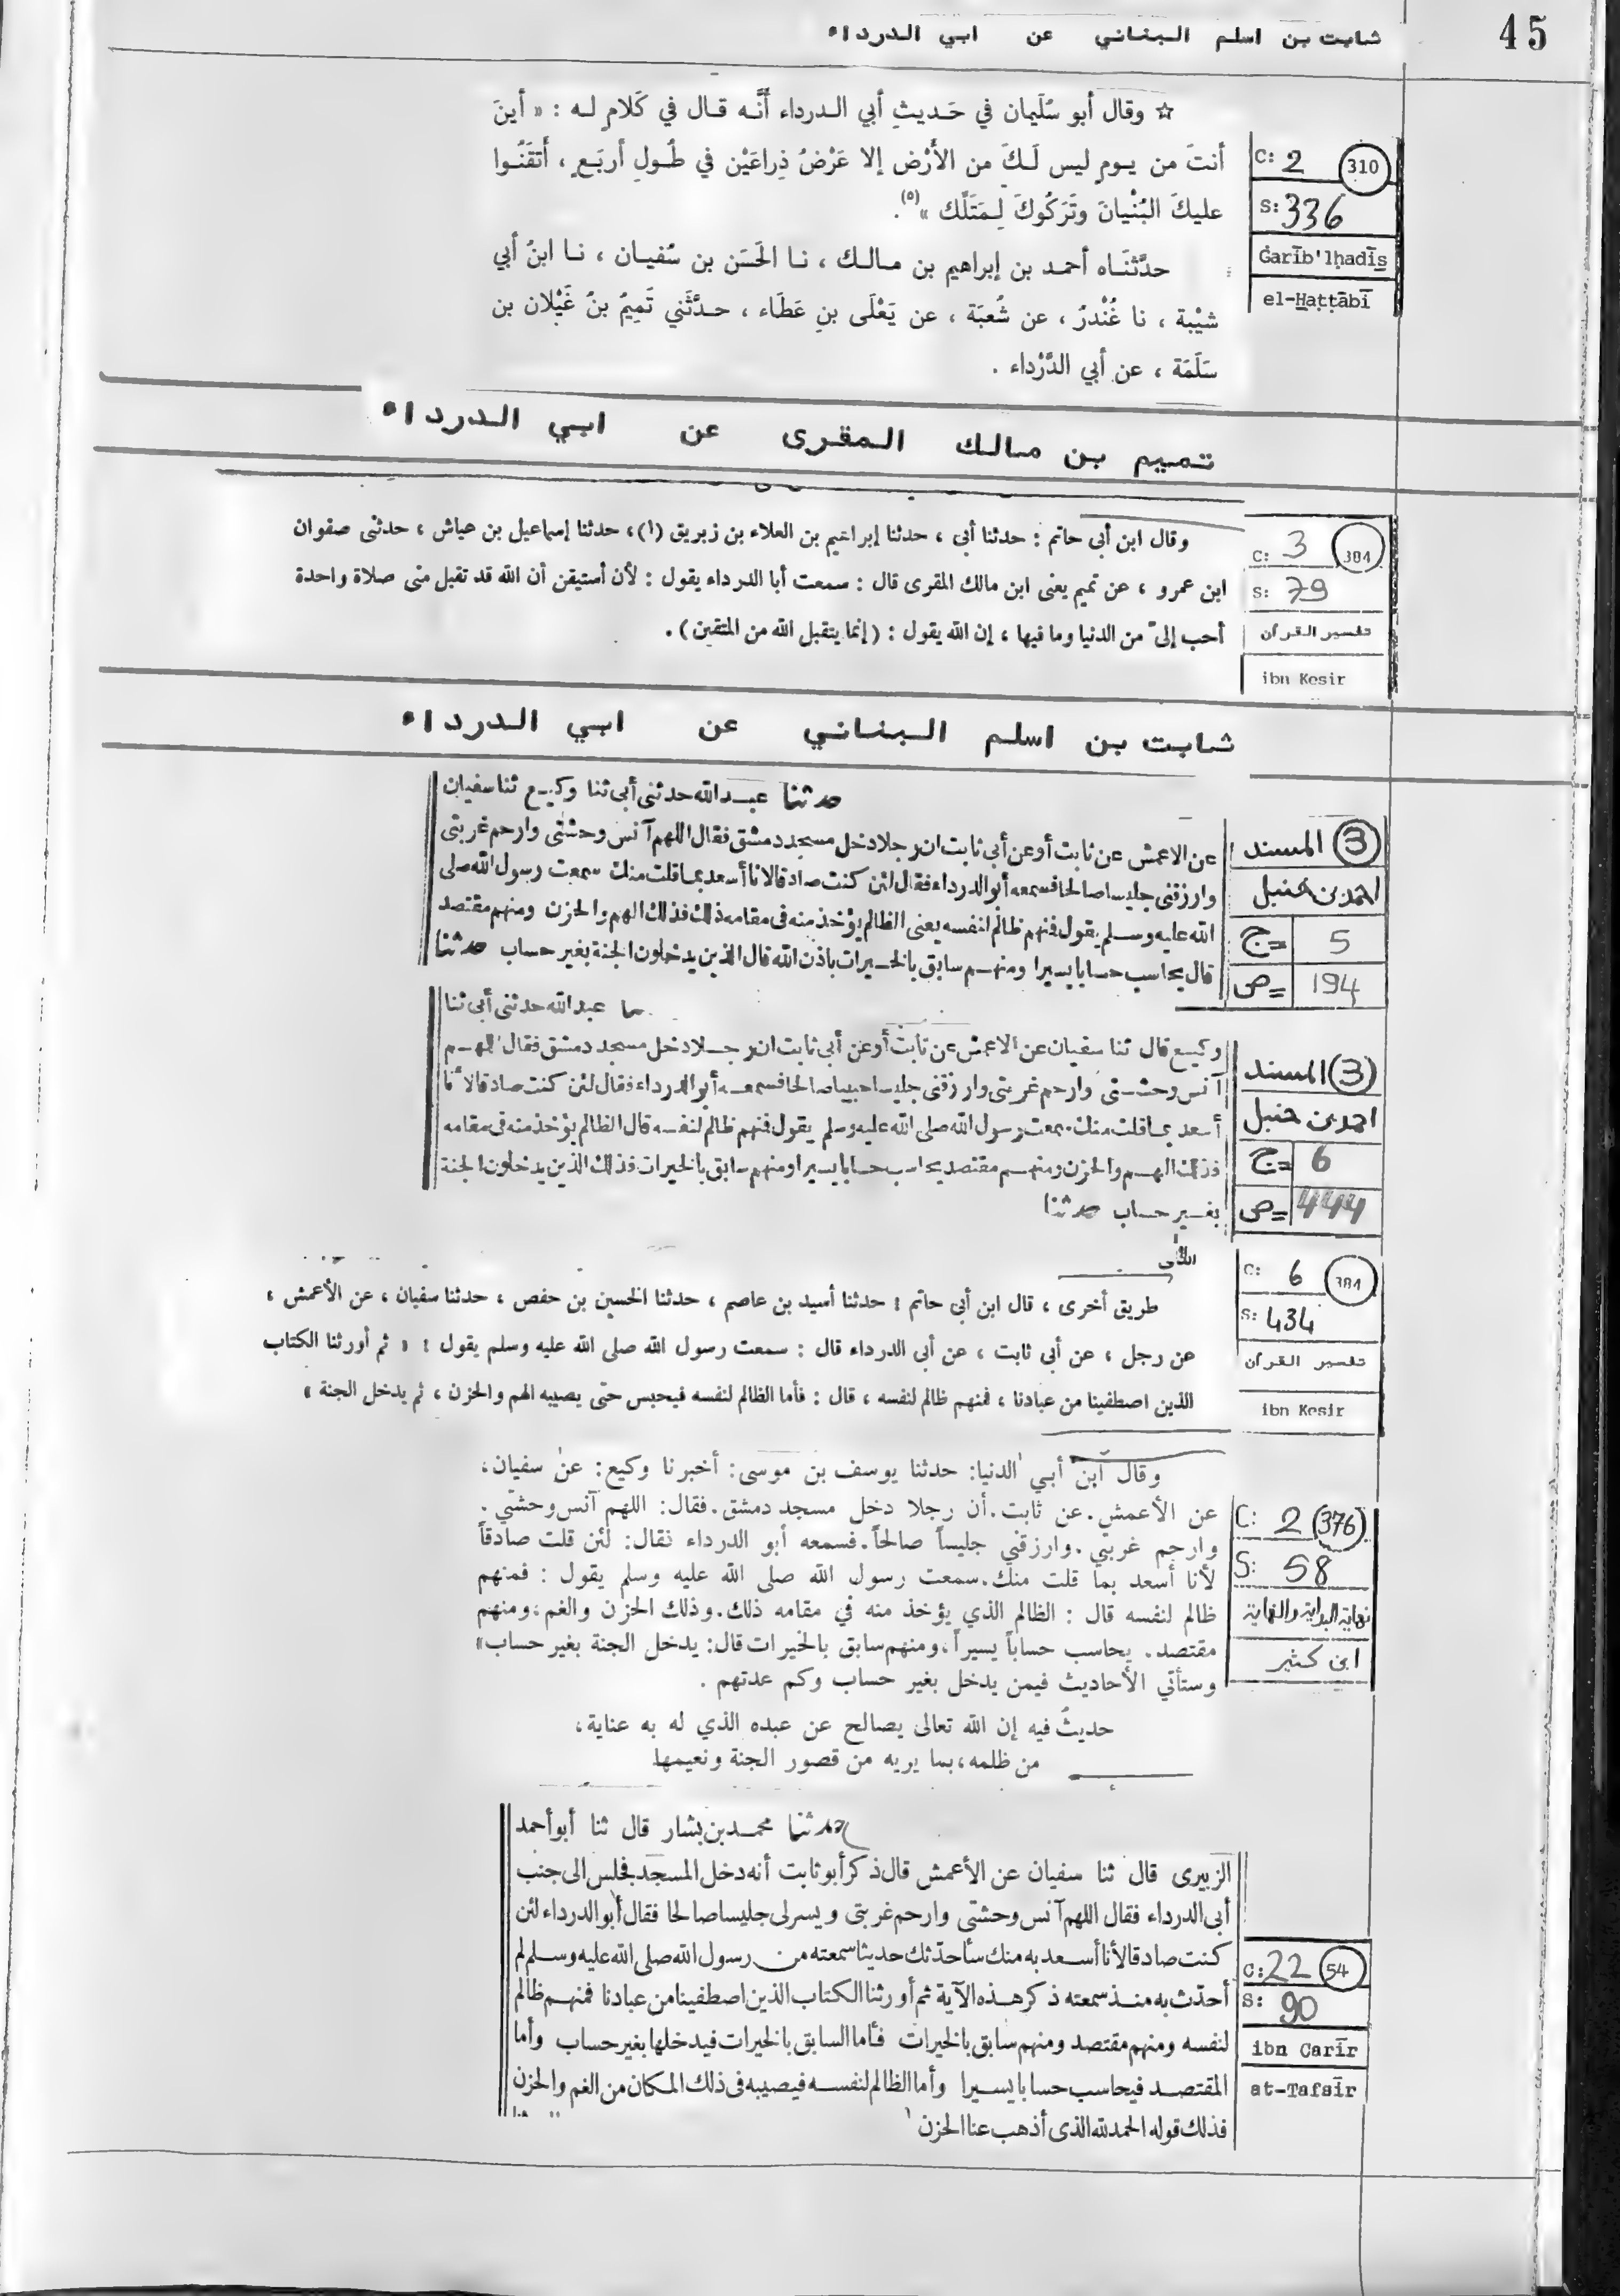 45
ثابت بن اسلم البناني عن ابي الدرداء
☆ وقال أبو سُلَيمان في حَديثِ أبي الدرداء أنَّه قال في كَلامٍ له : « أينَ
أنتَ من يومٍ ليس لَكَ من الأَرْض إلا عَرْضُ ذِراعَيْن في طُولِ أربَعٍ ، أَتقَنُوا
عليكَ البُنْيانَ وتَرَكُوكَ لِمَتَلِّك »(٥).
حدَّثنَاه أحمد بن إبراهيم بن مالك ، نا الحَسَن بن سُفيان ، نا ابنُ أبي
شَيْبة ، نا غُنْدرُ ، عن شُعبَة ، عن يَعْلَى بنِ عَطَاء ، حدَّثَني تَمِيمُ بنُ غَيْلان بن
سَلَمَة ، عن أبي الدَّرْداء .
C: 2 310
S: 336
Ġarīb'lḥadīs̱
el-Ḫaṭṭābī
تميم بن مالك المقرى عن ابي الدرداء
وقال ابن أبى حاتم : حدثنا أبى ، حدثنا إبراهيم بن العلاء بن زبريق (١)، حدثنا إسماعيل بن عياش ، حدثنى صفوان
ابن عمرو ، عن تميم يعنى ابن مالك المقرى قال : سمعت أبا الدرداء يقول : لأن أستيقن أن الله قد تقبل منى صلاة واحدة
أحب إلىّ من الدنيا وما فيها ، إن الله يقول : (إنما يتقبل الله من المتقين) .
C: 3 384
S: 79
تفسير القرآن
ibn Kesir
ثابت بن اسلم البناني عن ابي الدرداء
حدثنا عبد الله حدثنى أبى ثنا وكيع ثنا سفيان
عن الاعمش عن ثابت أو عن أبى ثابت ان رجلا دخل مسجد دمشق فقال اللهم آنس وحشتى وارحم غربتى
وارزقنى جليسا صالحا فسمعه أبو الدرداء فقال لئن كنت صادقا لانا أسعد بما قلت منك سمعت رسول الله صلى
الله عليه وسلم يقول فمنهم ظالم لنفسه يعنى الظالم يؤخذ منه فى مقامه ذلك فذلك الهم والحزن ومنهم مقتصد
قال يحاسب حسابا يسيرا ومنهم سابق بالخيرات باذن الله قال الذين يدخلون الجنة بغير حساب حدثنا
3 المسند
احمد بن حنبل
ج= 5
ص= 194
عبد الله حدثنى أبى ثنا
وكيع قال ثنا سفيان عن الاعمش عن ثابت أو عن أبى ثابت ان رجلا دخل مسجد دمشق فقال اللهم
آنس وحشتى وارحم غربتى وارزقنى جليسا حبيبا صالحا فسمعه أبو الدرداء فقال لئن كنت صادقا لأنا
أسعد بما قلت منك سمعت رسول الله صلى الله عليه وسلم يقول فمنهم ظالم لنفسه قال الظالم يؤخذ منه فى مقامه
فذلك الهم والحزن ومنهم مقتصد يحاسب حسابا يسيرا ومنهم سابق بالخيرات فذلك الذين يدخلون الجنة
بغير حساب حدثنا
(3) المسند
احمد بن حنبل
ج= 6
ص= 444
طريق أخرى ، قال ابن أبى حاتم : حدثنا أسيد بن عاصم ، حدثنا الحسين بن حفص ، حدثنا سفيان ، عن الأعمش ،
عن رجل ، عن أبى ثابت ، عن أبى الدرداء قال : سمعت رسول الله صلى الله عليه وسلم يقول : « ثم أورثنا الكتاب
الذين اصطفينا من عبادنا ، فمنهم ظالم لنفسه ، قال : فأما الظالم لنفسه فيحبس حتى يصيبه الهم والحزن ، ثم يدخل الجنة »
C: 6 384
S: 434
تفسير القرآن
ibn Kesir
وقال ابن أبي الدنيا: حدثنا يوسف بن موسى: أخبرنا وكيع: عن سفيان،
عن الأعمش. عن ثابت. أن رجلا دخل مسجد دمشق. فقال: اللهم آنس وحشتي .
وارحم غربتي . وارزقني جليساً صالحاً. فسمعه أبو الدرداء فقال: لئن قلت صادقاً
لأنا أسعد بما قلت منك. سمعت رسول الله صلى الله عليه وسلم يقول : فمنهم
ظالم لنفسه قال : الظالم الذي يؤخذ منه في مقامه ذلك. وذلك الحزن والغم، ومنهم
مقتصد. يحاسب حساباً يسيراً، ومنهم سابق بالخيرات قال: يدخل الجنة بغير حساب»
وستأتي الأحاديث فيمن يدخل بغير حساب وكم عدتهم .
حديثُ فيه إن الله تعالى يصالح عن عبده الذي له به عناية،
من ظلمه، بما يريه من قصور الجنة ونعيمها
C: 2 (376)
S: 58
نهاية البداية والنهاية
ابن كثير
حدثنا محمد بن بشار قال ثنا أبو أحمد
الزبيرى قال ثنا سفيان عن الأعمش قال ذكر أبو ثابت أنه دخل المسجد فجلس الى جنب
أبى الدرداء فقال اللهم آنس وحشتى وارحم غربتى ويسر لى جليسا صالحا فقال أبو الدرداء لئن
كنت صادقا لأنا أسعد به منك سأحدثك حديثا سمعته من رسول الله صلى الله عليه وسلم لم
أحدث به منذ سمعته ذكر هذه الآية ثم أورثنا الكتاب الذين اصطفينا من عبادنا فمنهم ظالم
لنفسه ومنهم مقتصد ومنهم سابق بالخيرات فأما السابق بالخيرات فيدخلها بغير حساب وأما
المقتصد فيحاسب حسابا يسيرا وأما الظالم لنفسه فيصيبه فى ذلك المكان من الغم والحزن
فذلك قوله الحمد لله الذى أذهب عنا الحزن
C: 22 54
S: 90
ibn Carīr
at-Tafsīr